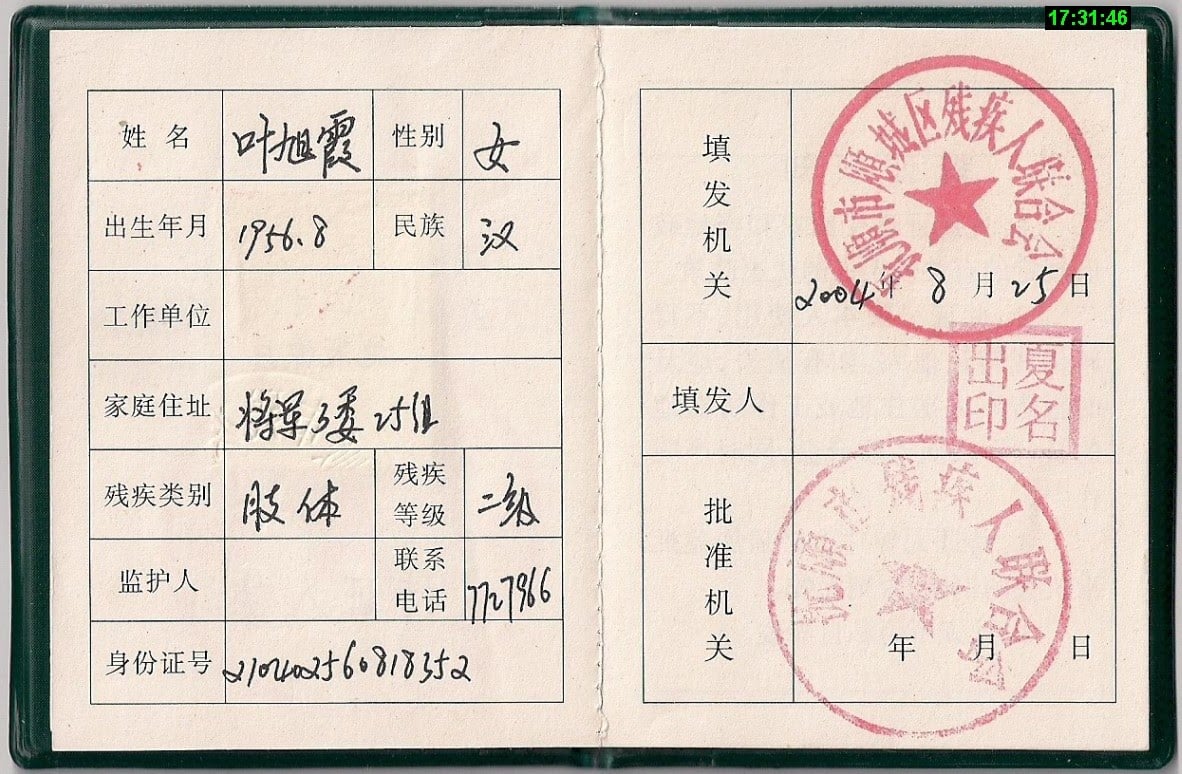 17:31:46
姓 名 叶旭霞 性别 女
出生年月 1956.8 民族 汉
工作单位
家庭住址 将军3委25组
残疾类别 肢体 残疾等级 二级
监护人 联系电话 7727966
身份证号 210402560818352
填发机关
抚顺市顺城区残疾人联合会
2004年8月25日
填发人
夏名出印
批准机关
抚顺市残疾人联合会
年 月 日